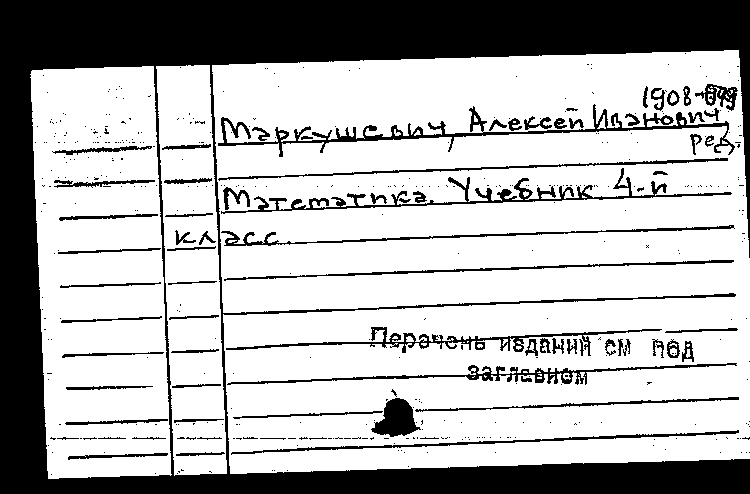 1908-
Маркушевич, Алексей Иванович
ред.
Математика. Учебник. 4-й
класс.
Перечень изданий см под
заглавием